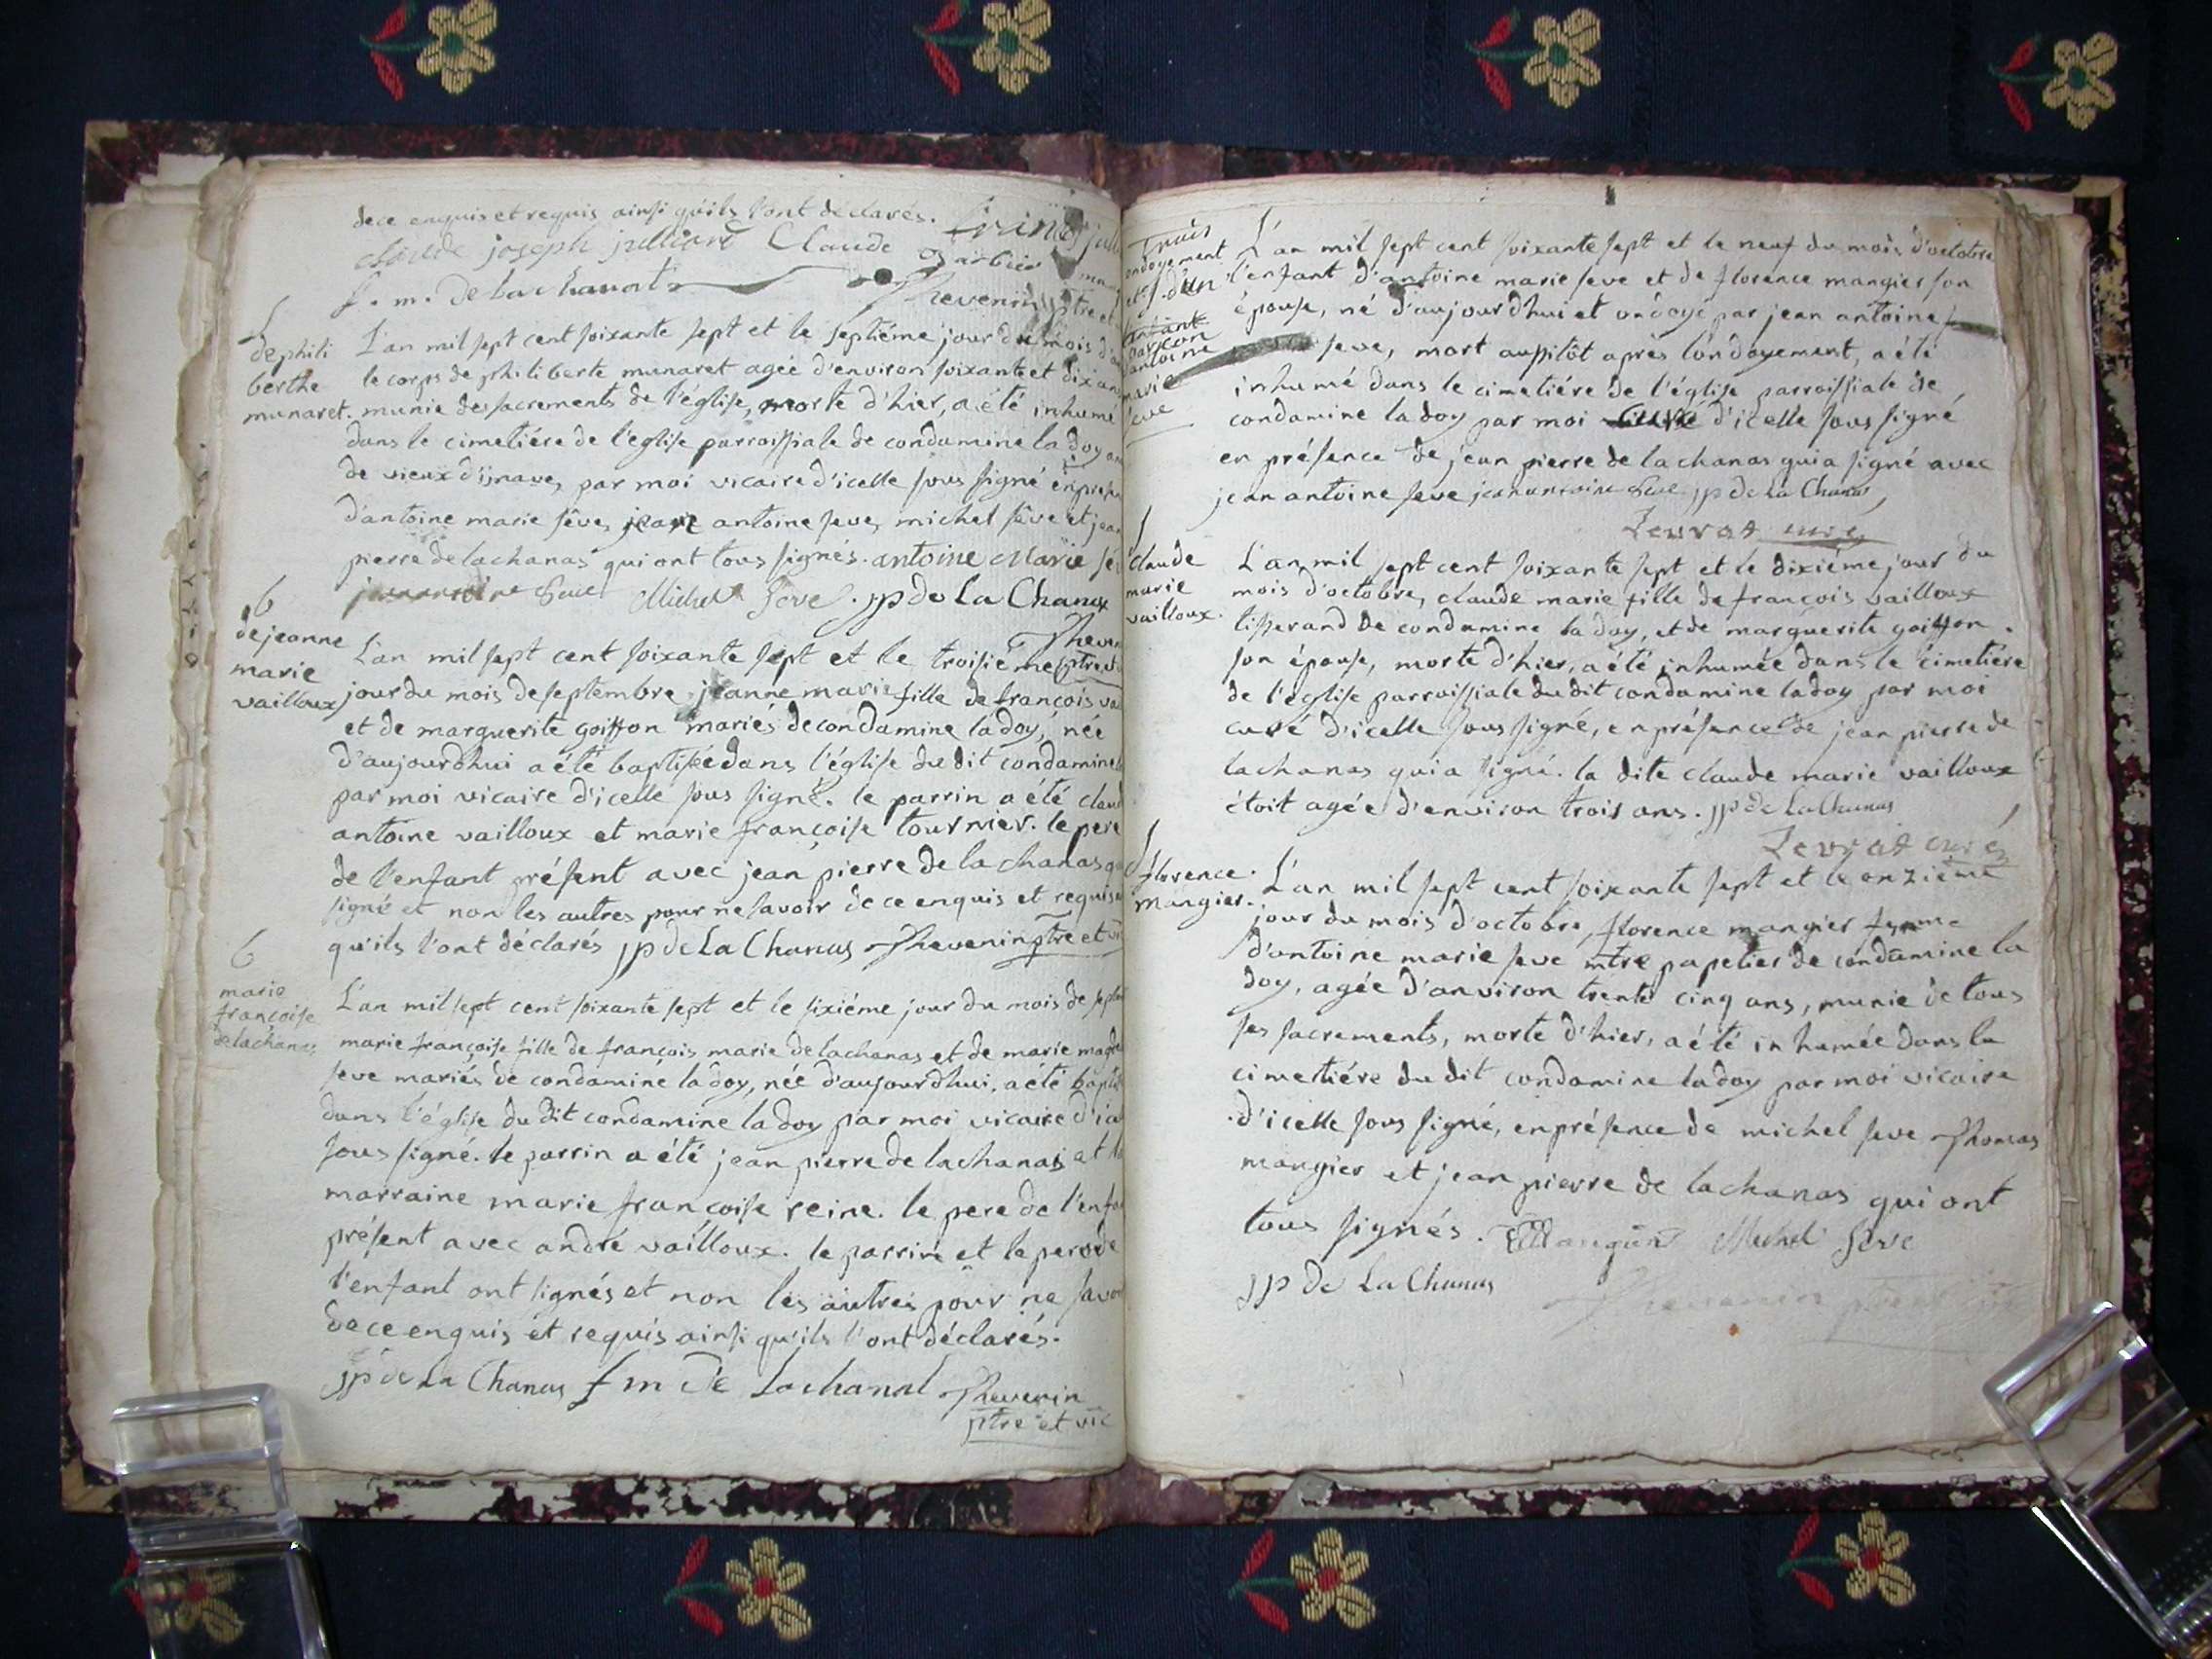 de ce enquis et requis ainsi qu'ils l'ont déclarés.
claude joseph julliard Claude Barbier
f. m. de lachanal Thevenin ptre et
S
de phili
berthe
munaret.
L'an mil sept cent soixante sept et le septiéme jour du mois
le corps de philiberte munaret agée d'environ soixante et dix ans
munie des sacrements de l'église, morte d'hier, a été inhumé
dans le cimetiére de l'église parroissiale de condamine la doy
de vieux d'ijnave, par moi vicaire d'icelle sous signé en presen
d'antoine marie sêve, jean antoine seve, michel sêve et jean
pierre de lachanas qui ont tous signés. antoine Marie sé
jeanantoine Seve Michel Seve. jp de La Chanas
Theven
ptre et vi
6
de jeanne
marie
vailloux
L'an mil sept cent soixante sept et le troisiéme
jour du mois de septembre jeanne marie fille de françois vai
et de marguerite goiffon mariés de condamine la doy, née
d'aujourdhui a été baptisée dans l'église du dit condamine
par moi vicaire d'icelle sous signé. le parrin a été claud
antoine vailloux et marie françoise tournier. le pere
de l'enfant présent avec jean pierre de la chanas
signé et non les autres pour ne savoir de ce enquis et requis
qu'ils l'ont déclarés jp de La Chanas Thevenin ptre et vi
6
marie
françoise
delachanas
L'an mil sept cent soixante sept et le sixiéme jour du mois de septem
marie françoise fille de françois marie delachanas et de marie magde
seve mariés de condamine la doy, née d'aujourdhui, a été bapti
dans l'église du dit condamine la doy par moi vicaire d'ice
sous signé. le parrin a été jean pierre de lachanas et la
marraine marie françoise reine. le pere de l'enfan
présent avec andré vailloux. le parrin et le pere de
l'enfant ont signés et non les autres pour ne savoi
de ce enquis et requis ainsi qu'ils l'ont déclarés.
jp de La Chanas f m de Lachanal Thevenin
ptre et vic
ondoyement
et S. d'un
enfant
antoine
marie
seve
L'an mil sept cent soixante sept et le neuf du mois d'octobre
l'enfant d'antoine marie seve et de florence mangier son
épouse, né d'aujourdhui et ondoyé par jean antoine
seve, mort aussitôt après l'ondoyement, a été
inhumé dans le cimetiére de l'église parroissiale de
condamine la doy par moi curé d'icelle sous signé
en présence de jean pierre de lachanas qui a signé avec
jean antoine seve jeanantoine Seve jp de La Chanas
Levrat curé
S
claude
marie
vailloux.
L'an mil sept cent soixante sept et le dixiéme jour du
mois d'octobre, claude marie fille de françois vailloux
tisserand de condamine la doy, et de marguerite goiffon
son épouse, morte d'hier, a été inhumée dans le cimetiére
de l'église parroissiale du dit condamine la doy par moi
curé d'icelle sous signé, en présence de jean pierre de
lachanas qui a signé. la dite claude marie vailloux
étoit agée d'environ trois ans. jp de LaChanas
Levrat curé
S
florence
mangier.
L'an mil sept cent soixante sept et le onziéme
jour du mois d'octobre, florence mangier femme
d'antoine marie seve mtre papetier de condamine la
doy, agée d'anviron trente cinq ans, munie de tous
ses sacrements, morte d'hier, a été inhumée dans le
cimetiére du dit condamine la doy par moi vicaire
d'icelle sous signé, en présence de michel seve Thomas
mangier et jean pierre de lachanas qui ont
tous signés. Michel Seve
jp de La Chanas
Thevenin